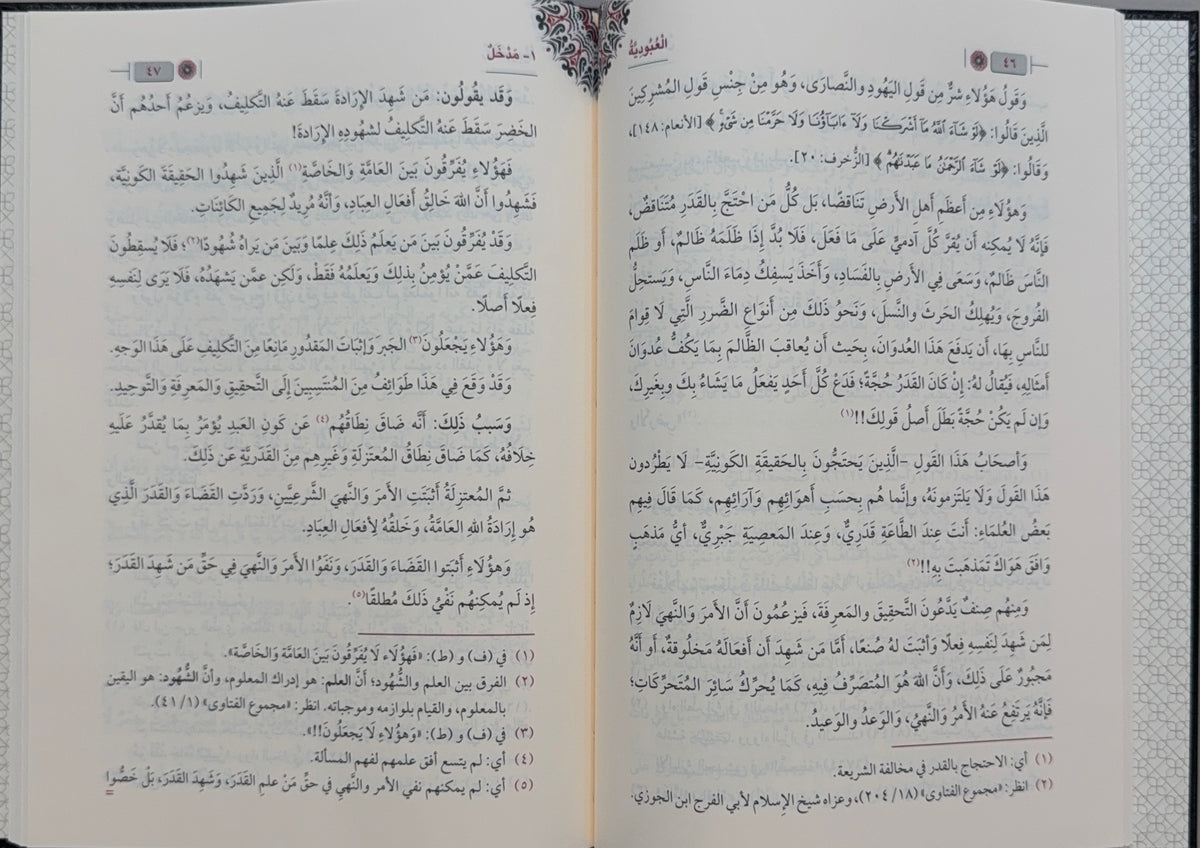 ٤٦
الْعُبُودِيَّةُ
وَقَولُ هَؤُلاءِ شرٌّ مِن قَولِ اليَهُودِ والنَّصارَى، وَهُو مِن جِنْسِ قَولِ المُشرِكِينَ
الَّذِينَ قَالُوا: ﴿لَوْ شَاءَ اللَّهُ مَا أَشْرَكْنَا وَلَا ءَابَاؤُنَا وَلَا حَرَّمْنَا مِن شَيْءٍ﴾ [الأنعام: ١٤٨]،
وَقَالُوا: ﴿لَوْ شَاءَ الرَّحْمَٰنُ مَا عَبَدْنَٰهُمْ﴾ [الزُّخرف: ٢٠].
وَهؤُلاءِ مِن أَعظَمِ أَهلِ الأَرضِ تَنَاقُضًا، بَل كُلُّ مَن احْتَجَّ بِالقَدَرِ مُتَنَاقضٌ،
فَإِنَّهُ لَا يُمكِنه أَن يُقرَّ كُلَّ آدميٍّ عَلَى مَا فَعَلَ، فَلَا بُدَّ إِذَا ظَلَمَهُ ظَالمٌ، أَو ظَلَم
النَّاسَ ظَالمٌ، وَسَعَى فِي الأَرضِ بِالفَسَادِ، وَأَخَذَ يَسفِكُ دِمَاءَ النَّاسِ، وَيَستَحِلُّ
الفُروجَ، وَيُهلِكُ الحَرثَ والنَّسلَ، وَنَحوُ ذَلكَ مِن أَنوَاعِ الضَّررِ الَّتِي لَا قِوامَ
للنَّاسِ بِهَا، أَن يَدفَعَ هَذَا العُدوَانَ، بِحَيث أَن يُعاقبَ الظَّالمَ بِمَا يَكُفُّ عُدوَانَ
أَمثَالِهِ، فَيُقالُ لهُ: إِنْ كَانَ القَدَرُ حُجَّةً؛ فَدَعْ كُلَّ أَحَدٍ يَفعَلُ مَا يَشَاءُ بِكَ وبِغَيرِكَ،
وَإن لَم يَكُنْ حُجَّةً بَطَلَ أَصلُ قَولِكَ!!(١)
وَأصحَابُ هَذَا القَولِ -الَّذِينَ يَحتَجُّونَ بِالحَقِيقَةِ الكَونِيَّةِ- لَا يَطْرُدون
هَذَا القَولَ وَلَا يَلتَزمونَهُ، وإنَّما هُم بِحَسبِ أَهوَائِهِم وَآرَائِهِم، كَمَا قَالَ فِيهِم
بَعضُ العُلمَاءِ: أَنتَ عِندَ الطَّاعَةِ قَدَريٌّ، وَعِندَ المَعصِيَةِ جَبْرِيٌّ، أَيُّ مَذهَبٍ
وَافَقَ هَوَاكَ تَمَذهَبتَ بِهِ!!(٢)
وَمِنهُم صِنفٌ يَدَّعُونَ التَّحقِيقَ وَالمَعرِفَةَ، فَيَزعُمُونَ أَنَّ الأَمرَ وَالنَّهيَ لَازِمٌ
لِمَن شَهِدَ لِنَفسِهِ فِعلًا وَأثبَتَ لهُ صُنعًا، أَمَّا مَن شَهِدَ أَن أَفعَالَهُ مَخلُوقَةٌ، أَو أَنَّهُ
مَجبُورٌ عَلَى ذَلِكَ، وَأَنَّ اللهَ هُوَ المُتَصَرِّفُ فِيهِ، كَمَا يُحرِّكُ سَائِرَ المُتَحَرِّكَاتِ؛
فَإِنَّهُ يَرتَفِعُ عَنهُ الأَمرُ وَالنَّهيُ، وَالوَعدُ وَالوَعيدُ.
(١) أي: الاحتجاج بالقدر في مخالفة الشريعة.
(٢) انظر: «مجموع الفتاوى» (١٨/ ٢٠٤)، وعزاه شيخ الإسلام لأبي الفرج ابن الجوزي.
١- مَدْخَلٌ
٤٧
وَقَد يقُولُون: مَن شَهِدَ الإِرَادَةَ سَقَطَ عَنهُ التَّكلِيفُ، وَيزعُمُ أَحدُهُم أَنَّ
الخَضِرَ سَقَطَ عَنهُ التَّكلِيفُ لشهُودِهِ الإِرَادَةَ!
فَهَؤُلَاءِ يُفَرِّقُونَ بَينَ العَامَّةِ وَالخَاصَّةِ(١) الَّذِينَ شَهِدُوا الحَقِيقَةَ الكَونِيَّةَ،
فَشَهِدُوا أَنَّ اللهَ خَالِقُ أَفعَالِ العِبَادِ، وَأَنَّهُ مُرِيدٌ لِجَمِيعِ الكَائِنَاتِ.
وَقَدْ يُفَرِّقُونَ بَينَ مَن يَعلَمُ ذَلكَ عِلمًا وَبَينَ مَن يَراهُ شُهُودًا(٢)؛ فَلَا يُسقِطُونَ
التَّكلِيفَ عَمَّنْ يُؤمِنُ بِذلكَ وَيَعلَمُهُ فَقَطْ، وَلَكِن عمَّن يَشهَدُهُ، فَلَا يَرَى لِنَفسِهِ
فِعلًا أَصلًا.
وَهَؤُلاءِ يَجعَلُونَ(٣) الجَبرَ وَإثبَاتَ المَقدُورِ مَانِعًا مِنَ التَّكلِيفِ عَلَى هَذَا الوَجهِ.
وَقَدْ وَقَعَ فِي هَذَا طَوَائِفُ مِنَ المُنتَسِبِينَ إِلَى التَّحقِيقِ وَالمَعرِفَةِ وَالتَّوحِيدِ.
وَسَببُ ذَلِكَ: أَنَّه ضَاقَ نِطَاقُهُم(٤) عَن كَونِ العَبدِ يُؤمَرُ بِمَا يُقدَّرُ عَلَيهِ
خِلَافُهُ، كَمَا ضَاقَ نِطَاقُ المُعتَزلَةِ وَغَيرِهِم مِنَ القَدَرِيَّةِ عَن ذَلكَ.
ثمَّ المُعتزِلَةُ أَثبَتَتِ الأَمرَ وَالنَّهيَ الشَّرعِيَّينِ، وَرَدَّتِ القَضَاءَ وَالقَدَرَ الَّذِي
هُو إِرَادَةُ اللهِ العَامَّةُ، وَخَلقُهُ لِأَفعَالِ العِبَادِ.
وَهؤُلَاءِ أَثبَتوا القَضَاءَ وَالقَدَرَ، وَنَفَوُا الأَمرَ وَالنَّهيَ فِي حَقِّ مَن شَهِدَ القَدَرَ؛
إِذ لَم يُمكِنهُم نَفْيُ ذَلكَ مُطلقًا(٥).
(١) في (ف) و (ط): «فَهؤُلَاء لَا يُفَرِّقُونَ بَينَ العَامَّة وَالخَاصَّة».
(٢) الفرق بين العلم والشُّهود؛ أنَّ العلم: هو إدراك المعلوم، وأنَّ الشُّهُود: هو اليقين
بالمعلوم، والقيام بلوازمه وموجباته. انظر: «مجموع الفتاوى» (١/ ٤١).
(٣) في (ف) و (ط): «وَهؤُلَاءِ لَا يَجعَلُونَ!!».
(٤) أي: لم يتسع أفق علمهم لفهم المسألة.
(٥) أي: لم يمكنهم نفي الأمر والنَّهيِ في حقِّ مَنْ علم القَدَرَ، وَشَهِدَ القَدَرَ، بَلْ خَصُّوا
=